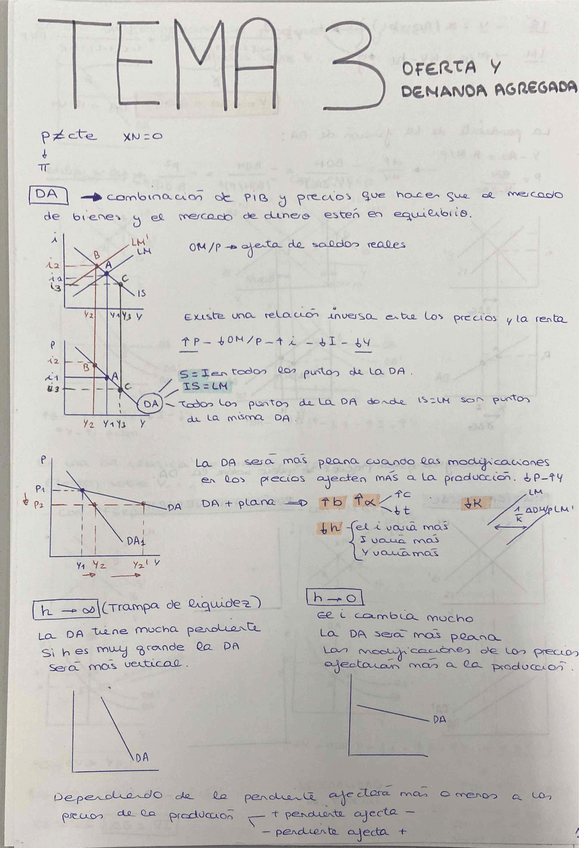 TEMA 3
OFERTA Y
DEMANDA AGREGADA
P≠cte XN=0
↓
π
DA → combinación de PIB y precios que hacen que el mercado
de bienes y el mercado de dinero estén en equilibrio.
i
LM'
LM
B
A
C
i2
i1
i3
IS
Y2 Y1 Y3 Y
OM/P → oferta de saldos reales
Existe una relación inversa entre los precios y la renta
↑P - ↓OM/P - ↑i - ↓I - ↓Y
P
i2
i1
B
A
C
DA
Y2 Y1 Y3 Y
S=I en todos los puntos de la DA.
IS=LM
Todos los puntos de la DA donde IS=LM son puntos
de la misma DA.
La DA será más plana cuando las modificaciones
en los precios afecten más a la producción. ↓P-↑Y
P
P1
↓ P2
DA
DA1
Y1 Y2 Y2' Y
DA + plana → ↑b ↑α ↑c
↓t
↓h el i varía más
I varía más
Y varía más
↓K
LM
1/K ΔOM/P LM'
h → ∞ (Trampa de liquidez)
La DA tiene mucha pendiente
Si h es muy grande la DA
será más vertical.
DA
h → 0
El i cambia mucho
La DA será más plana
Las modificaciones de los precios
afectarán más a la producción.
DA
Dependiendo de la pendiente afectará más o menos a los
precios de la producción + pendiente afecta -
- pendiente afecta +